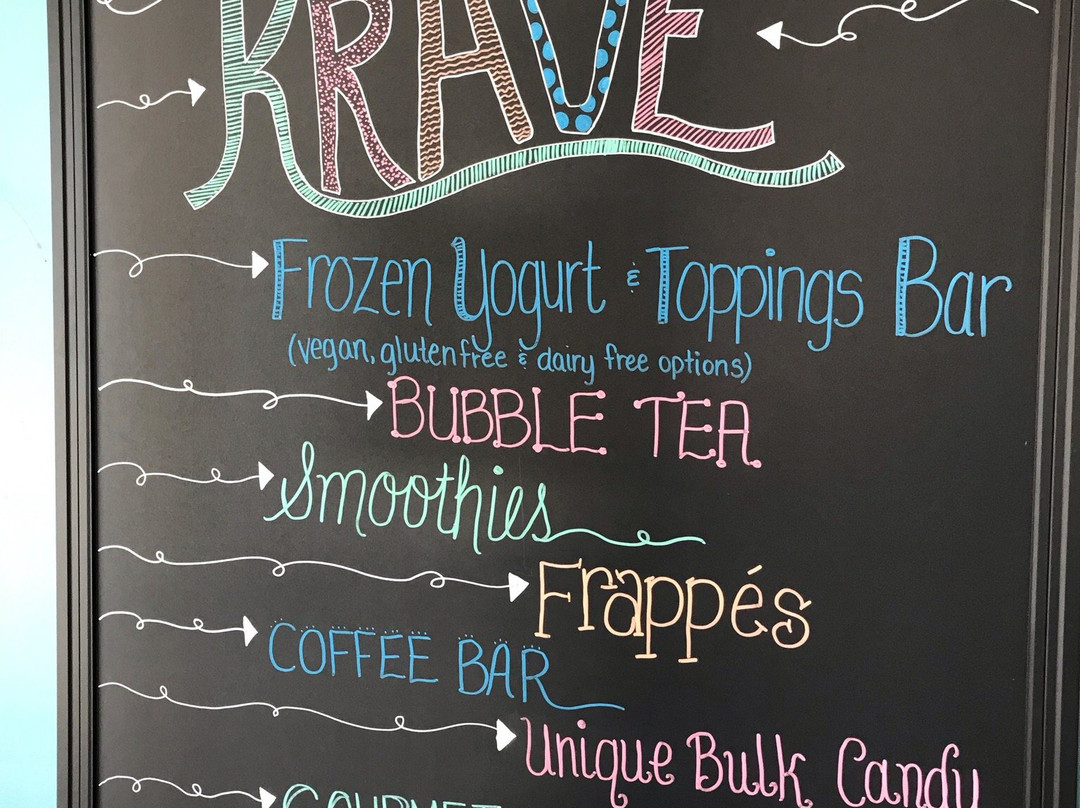 KRAVE
Frozen Yogurt & Toppings Bar
(vegan, gluten free & dairy free options)
BUBBLE TEA
Smoothies
Frappés
COFFEE BAR
Unique Bulk Candy
GOURMET